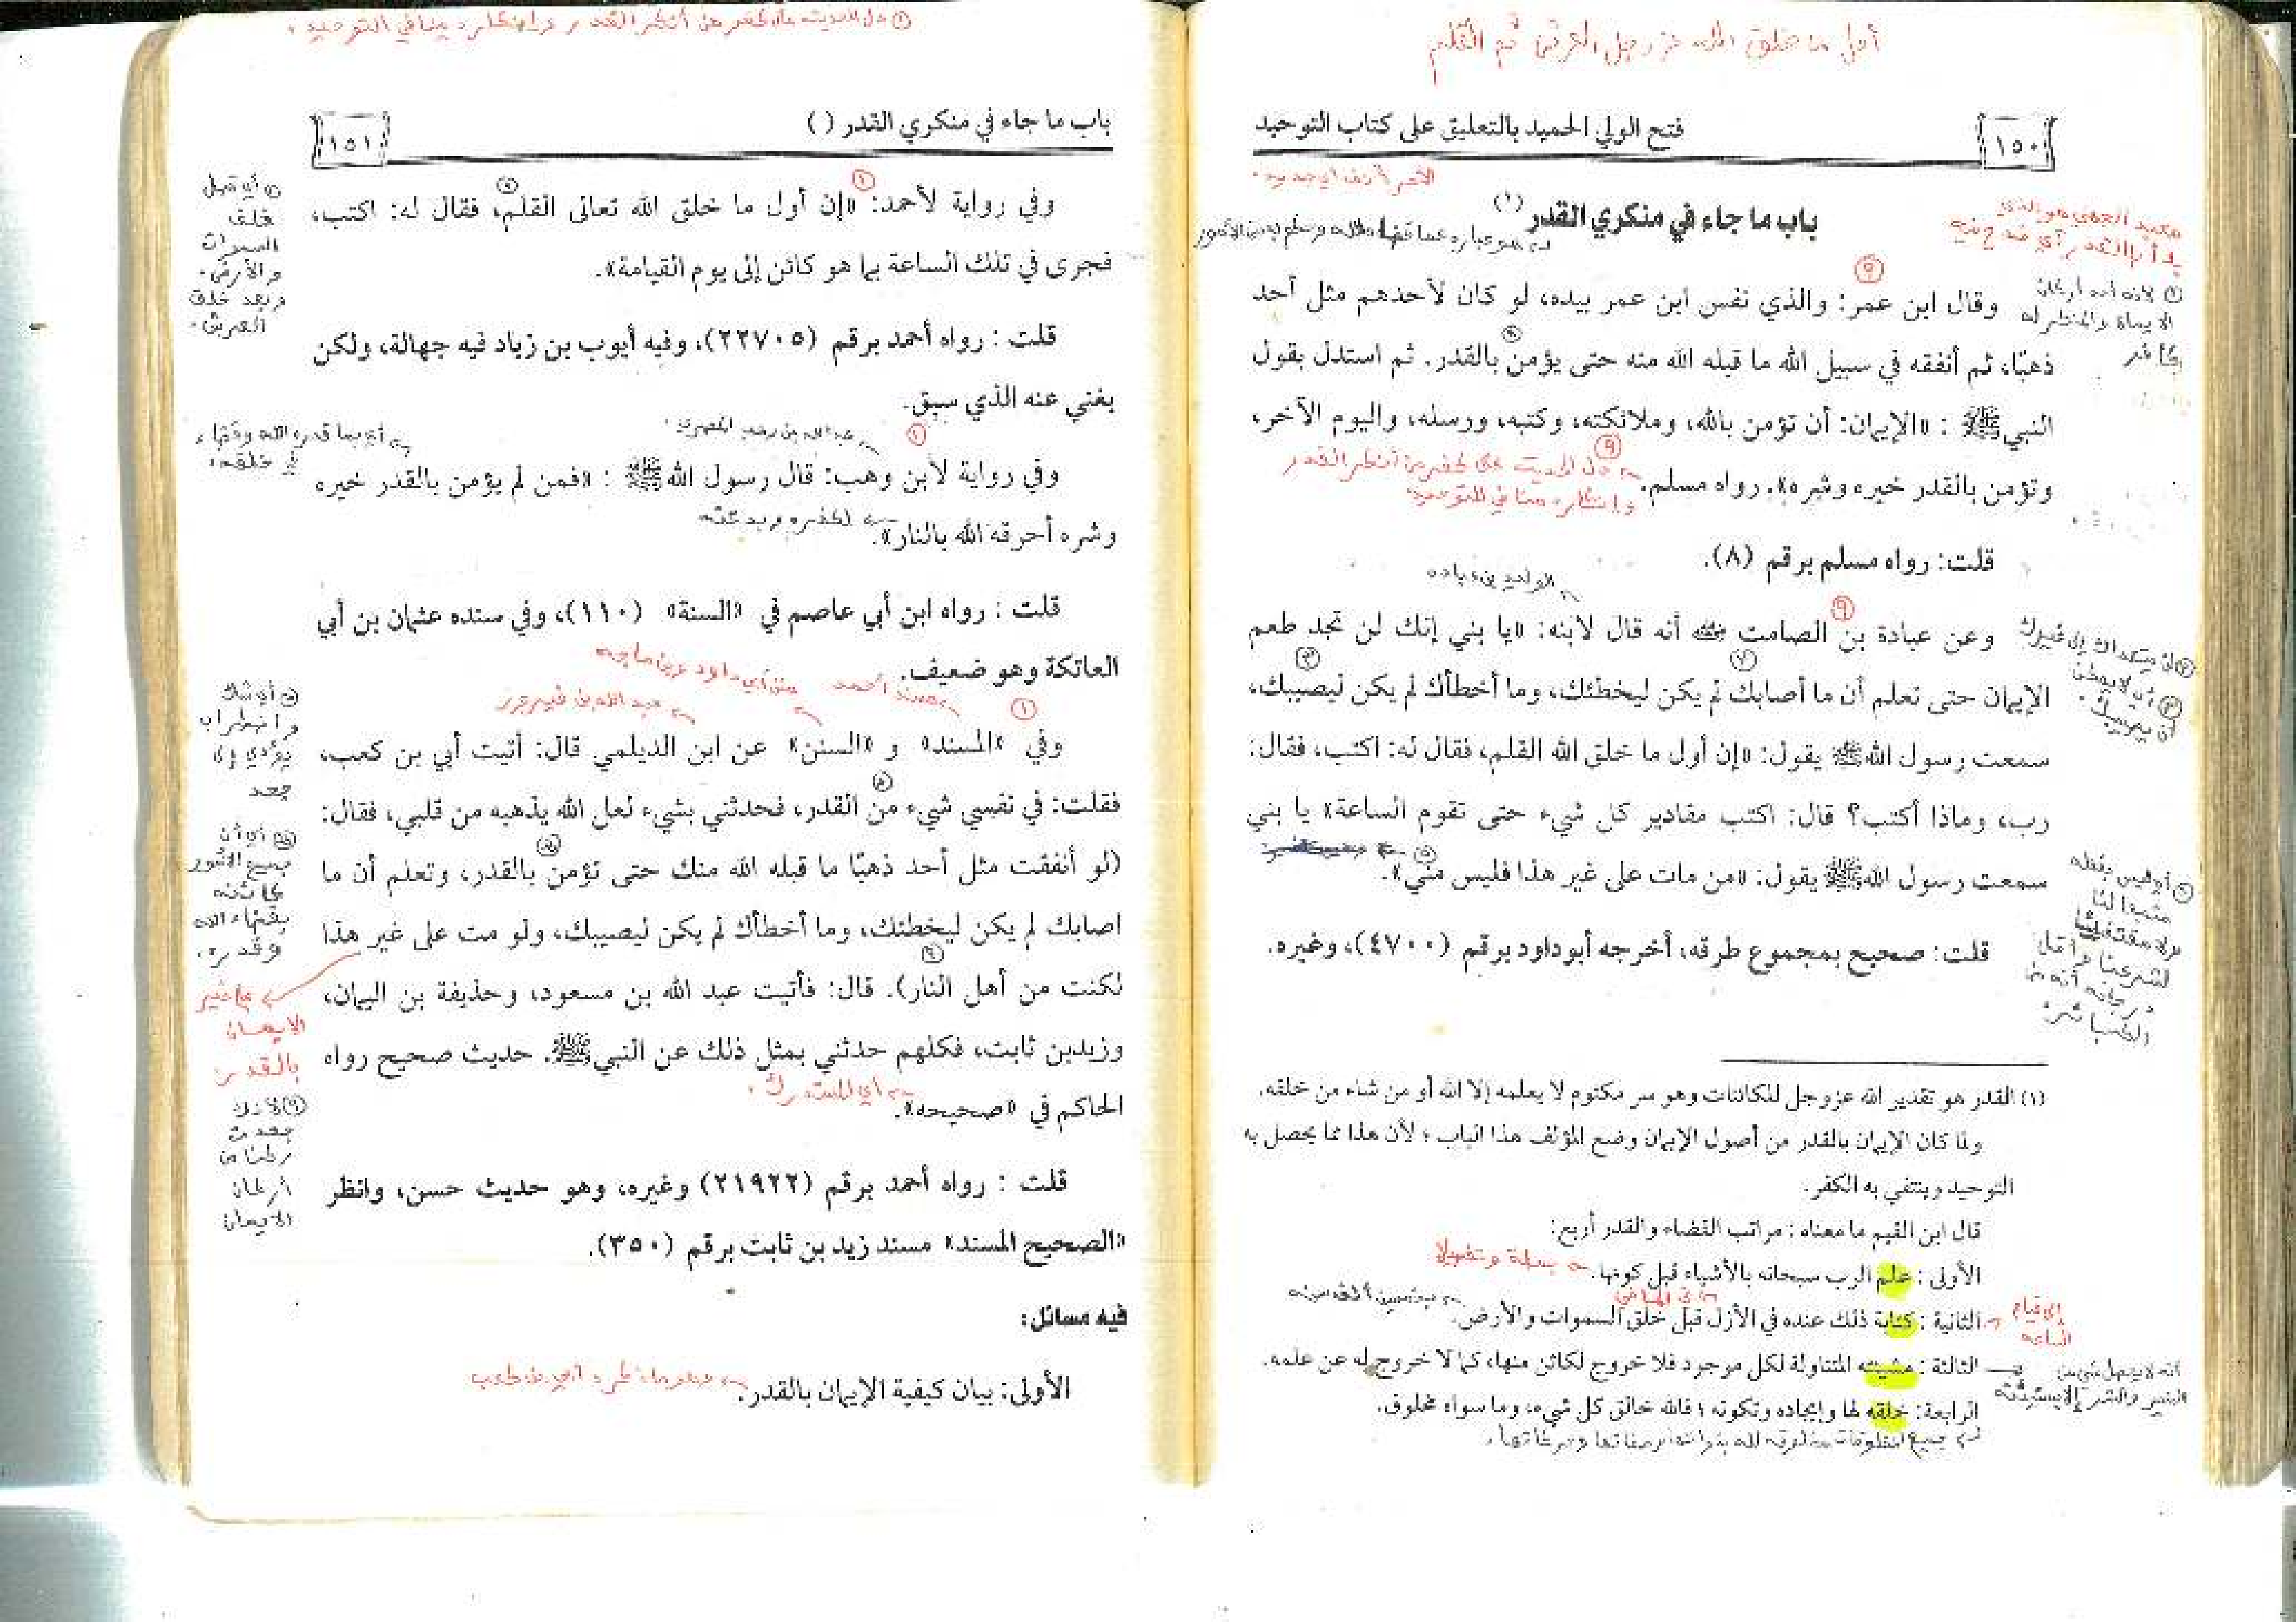 أول ما خلق الله عز وجل العرش ثم القلم
١٥٠
فتح الولي الحميد بالتعليق على كتاب التوحيد
باب ما جاء في منكري القدر (١)
وقال ابن عمر: والذي نفس ابن عمر بيده، لو كان لأحدهم مثل أحد
ذهبًا، ثم أنفقه في سبيل الله ما قبله الله منه حتى يؤمن بالقدر. ثم استدل بقول
النبي ﷺ : «الإيمان: أن تؤمن بالله، وملائكته، وكتبه، ورسله، واليوم الآخر،
وتؤمن بالقدر خيره وشره». رواه مسلم.
دل الحديث على كفر من أنكر القدر
وإنكاره منافي للتوحيد
قلت: رواه مسلم برقم (٨).
الوليد بن عبادة
وعن عبادة بن الصامت ﵁ أنه قال لابنه: «يا بني إنك لن تجد طعم
الإيمان حتى تعلم أن ما أصابك لم يكن ليخطئك، وما أخطأك لم يكن ليصيبك،
سمعت رسول الله ﷺ يقول: «إن أول ما خلق الله القلم، فقال له: اكتب، فقال:
رب، وماذا أكتب؟ قال: اكتب مقادير كل شيء حتى تقوم الساعة» يا بني
سمعت رسول الله ﷺ يقول: «من مات على غير هذا فليس مني».
قلت: صحيح بمجموع طرقه، أخرجه أبو داود برقم (٤٧٠٠)، وغيره.
(١) القدر هو تقدير الله عز وجل للكائنات وهو سر مكتوم لا يعلمه إلا الله أو من شاء من خلقه.
ولما كان الإيمان بالقدر من أصول الإيمان وضع المؤلف هذا الباب ؛ لأن هذا مما يحصل به
التوحيد وينتفي به الكفر.
قال ابن القيم ما معناه : مراتب القضاء والقدر أربع:
الأولى : علم الرب سبحانه بالأشياء قبل كونها.
جملة وتفصيلا
الثانية : كتابة ذلك عنده في الأزل قبل خلق السموات والأرض.
إلى قيام
الساعة
الثالثة : مشيئته المتناولة لكل موجود فلا خروج لكائن منها، كما لا خروج له عن علمه.
الرابعة: خلقه لها وإيجاده وتكونه ؛ فالله خالق كل شيء، وما سواه مخلوق.
جميع المخلوقات مخلوقة لله بذواتها وصفاتها وحركاتها.
باب ما جاء في منكري القدر ( )
١٥١
وفي رواية لأحمد: «إن أول ما خلق الله تعالى القلم، فقال له: اكتب،
فجرى في تلك الساعة بما هو كائن إلى يوم القيامة».
أي قبل
خلق
السموات
والأرض.
وبعد خلق
العرش.
قلت : رواه أحمد برقم (٢٢٧٠٥)، وفيه أيوب بن زياد فيه جهالة، ولكن
يغني عنه الذي سبق.
عبدالله بن وهب المصري.
أي بما قدره الله وقضاه
في خلقه.
وفي رواية لابن وهب: قال رسول الله ﷺ : «فمن لم يؤمن بالقدر خيره
وشره أحرقه الله بالنار».
لكفره وبدعته
قلت : رواه ابن أبي عاصم في «السنة» (١١٠)، وفي سنده عثمان بن أبي
العاتكة وهو ضعيف.
مسند أحمد
سنن أبي داود وابن ماجه
عبد الله بن فيروز
وفي «المسند» و «السنن» عن ابن الديلمي قال: أتيت أبي بن كعب،
فقلت: في نفسي شيء من القدر، فحدثني بشيء لعل الله يذهبه من قلبي، فقال:
(لو أنفقت مثل أحد ذهبًا ما قبله الله منك حتى تؤمن بالقدر، وتعلم أن ما
اصابك لم يكن ليخطئك، وما أخطأك لم يكن ليصيبك، ولو مت على غير هذا
لكنت من أهل النار). قال: فأتيت عبد الله بن مسعود، وحذيفة بن اليمان،
وزيدبن ثابت، فكلهم حدثني بمثل ذلك عن النبي ﷺ. حديث صحيح رواه
الحاكم في «صحيحه».
أي المستدرك.
أي شك
واضطراب
يؤدي إلى
جحد
أي أن
جميع الأمور
كائنة
بقضاء الله
وقدره.
على غير
الإيمان
بالقدر
لأنك
جحدت
ركنا من
أركان
الإيمان
قلت : رواه أحمد برقم (٢١٩٢٢) وغيره، وهو حديث حسن، وانظر
«الصحيح المسند» مسند زيد بن ثابت برقم (٣٥٠).
فيه مسائل:
الأولى: بيان كيفية الإيمان بالقدر.